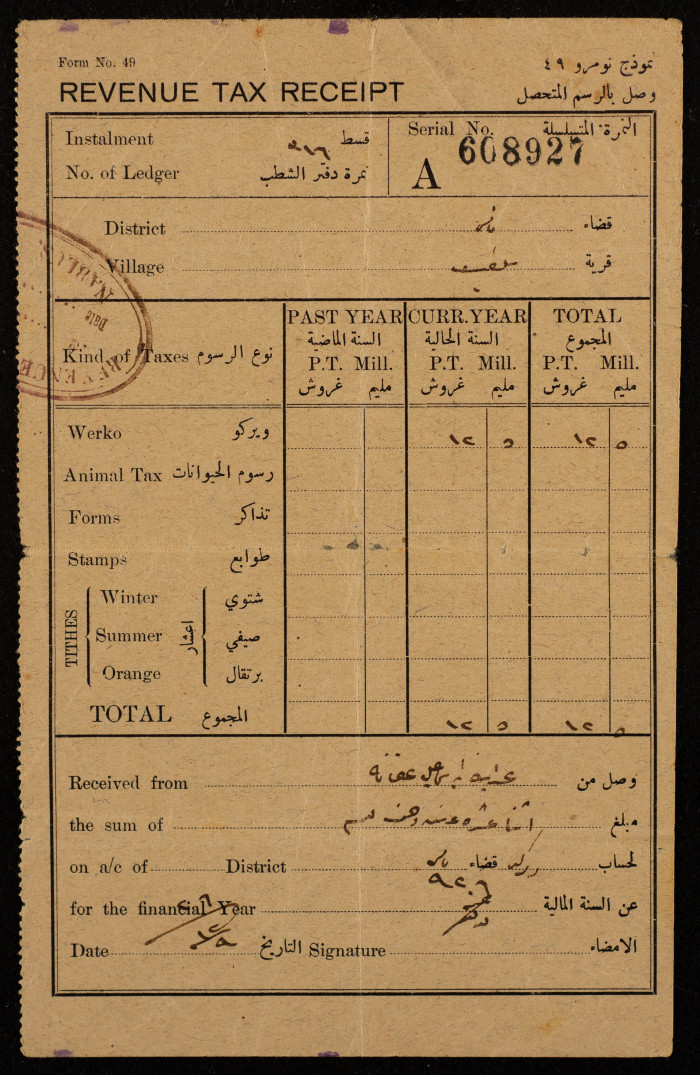 Form No. 49 نموذج نومرو ٤٩
REVENUE TAX RECEIPT وصل بالرسم المتحصل
Instalment قسط
No. of Ledger نمرة دفتر الشطب ٢١٦
Serial No. النمرة المتسلسلة
A 608927
District نابلس قضاء
Village سلفيت قرية
Kind of Taxes نوع الرسوم
PAST YEAR CURR. YEAR TOTAL
السنة الماضية السنة الحالية المجموع
P.T. Mill. P.T. Mill. P.T. Mill.
غروش مليم غروش مليم غروش مليم
Werko ويركو ١٢ ٥ ١٢ ٥
Animal Tax رسوم الحيوانات
Forms تذاكر
Stamps طوابع
TITHES اعشار
Winter شتوي
Summer صيفي
Orange برتقال
TOTAL المجموع ١٢ ٥ ١٢ ٥
Received from وصل من
the sum of مبلغ
on a/c of District قضاء لحساب
for the financial Year عن السنة المالية
Date التاريخ Signature الامضاء
NABLUS
Date
REVENUE